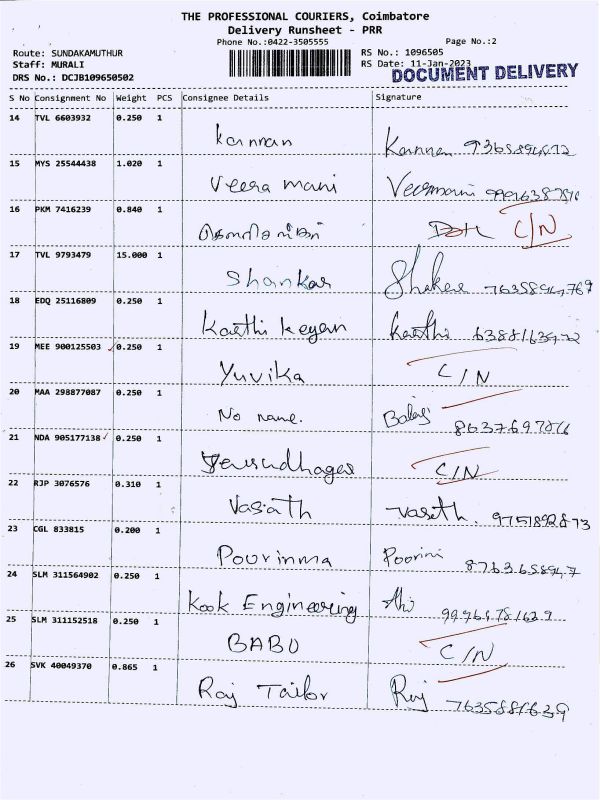 THE PROFESSIONAL COURIERS, Coimbatore
Delivery Runsheet - PRR
Phone No.:0422-3505555 Page No.:2
Route: SUNDAKAMUTHUR RS No.: 1096505
Staff: MURALI RS Date: 11-Jan-2023
DRS No.: DCJB109650502 DOCUMENT DELIVERY
S No Consignment No Weight PCS Consignee Details Signature
14 TVL 6603932 0.250 1
Kannan Kannan
15 MYS 25544438 1.020 1
Veera mani Veeramani
16 PKM 7416239 0.840 1
C/N
17 TVL 9793479 15.000 1
Shankar
18 EDQ 25116809 0.250 1
Karthikeyan Karthi
19 MEE 900125503 0.250 1
Yuvika C/N
20 MAA 298877087 0.250 1
No name. Balaji
21 NDA 905177138 0.250 1
C/N
22 RJP 3076576 0.310 1
Vasath
23 CGL 833815 0.200 1
Pourinma Poorini
24 SLM 311564902 0.250 1
Kook Engineering
25 SLM 311152518 0.250 1
BABU C/N
26 SVK 40049370 0.865 1
Raj Tailor Raj 7635881639